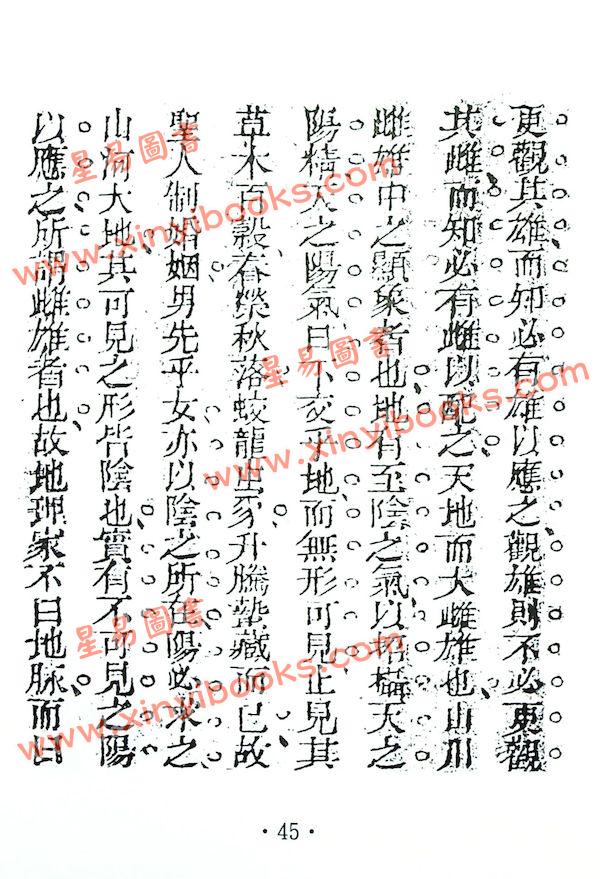 更觀其雄而知必有雄以應之觀雄則不必更觀
其雌而知必有雌以配之天地而大雌雄也山川
雌雄中之顯象者也地有至陰之氣以招攝天之
陽精天之陽氣日下交乎地而無形可見止見其
草木百穀春榮秋落蛟龍虫豸升騰蟄藏而已故
聖人制婚姻男先乎女亦以陰之所在陽必求之
山河大地其可見之形皆陰也實有不可見之陽
以應之所謂雌雄者也故地理家不曰地脉而曰
星易圖書
www.xinyibooks.com
星易圖書
www.xinyibooks.com
星易圖書
www.xinyibooks.com
·45·